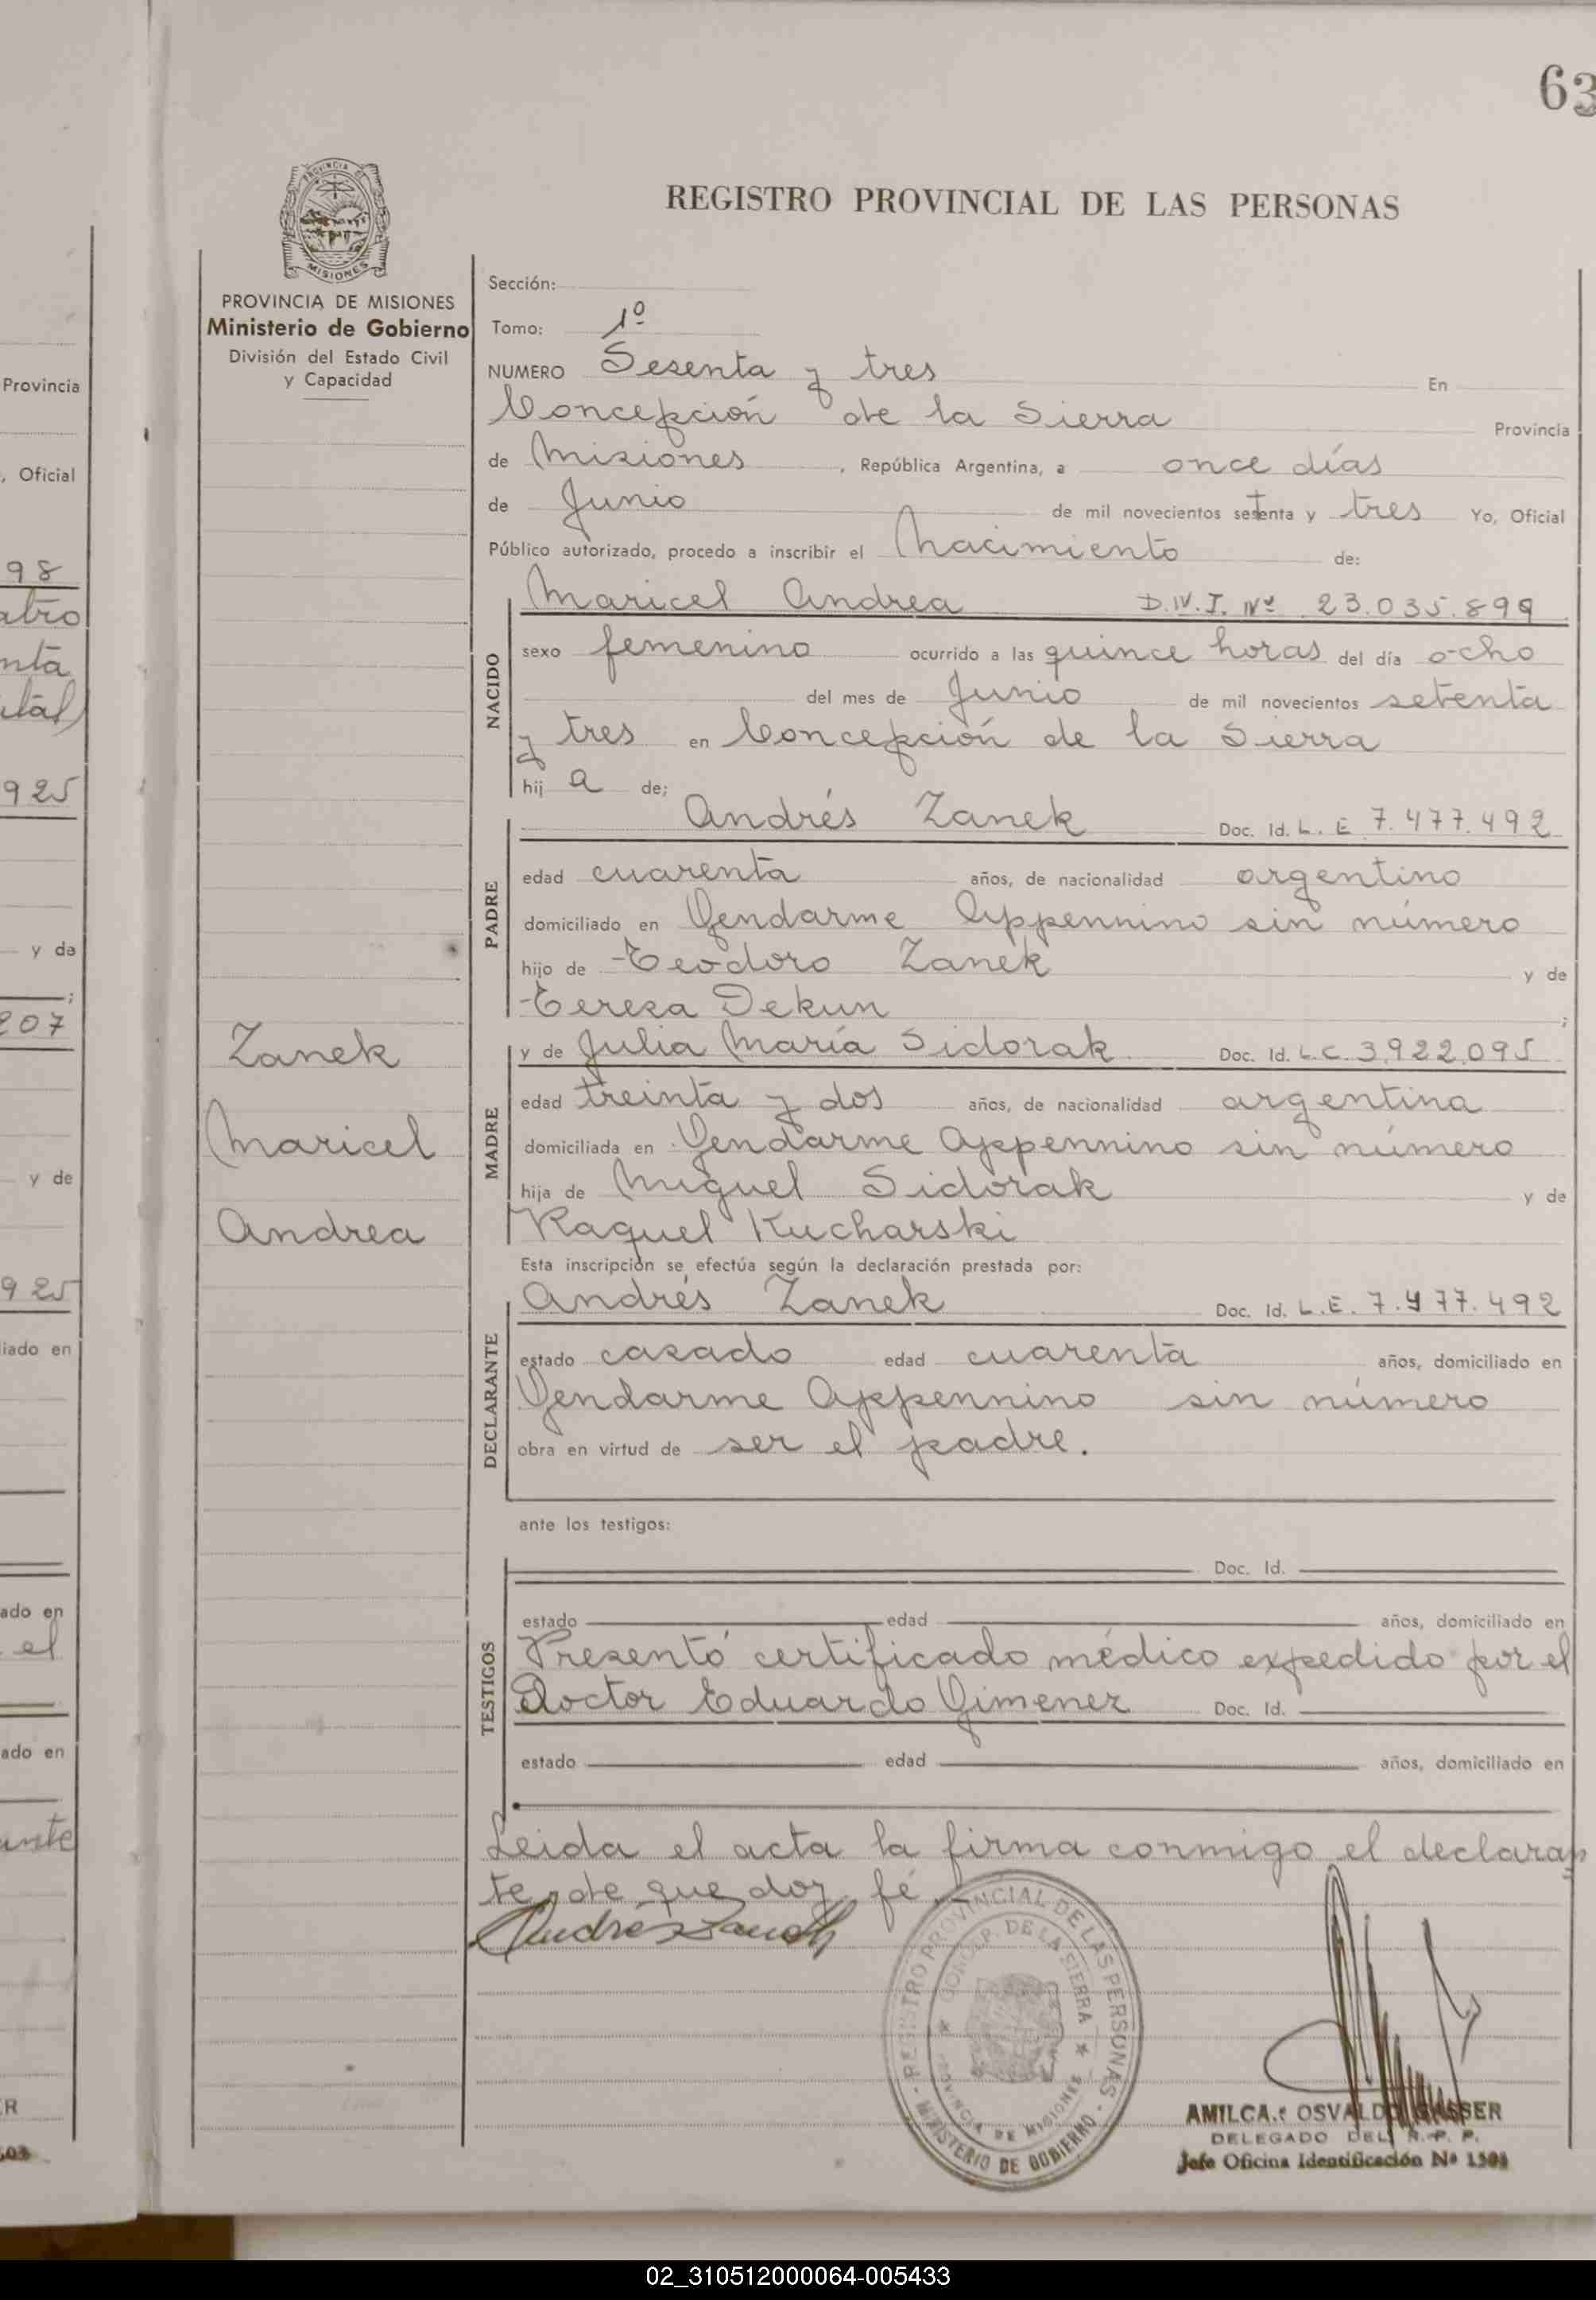 63
REGISTRO PROVINCIAL DE LAS PERSONAS
PROVINCIA DE
MISIONES
PROVINCIA DE MISIONES
Ministerio de Gobierno
División del Estado Civil
y Capacidad
Sección:
Tomo: 1º
NUMERO Sesenta y tres En
Concepción de la Sierra Provincia
de Misiones, República Argentina, a once días
de Junio de mil novecientos setenta y tres Yo, Oficial
Público autorizado, procedo a inscribir el Nacimiento de:
NACIDO
Maricel Andrea D.N.I. Nº 23.035.899
sexo femenino ocurrido a las quince horas del día ocho
del mes de Junio de mil novecientos setenta
y tres en Concepción de la Sierra
hij a de;
PADRE
Andrés Zanek Doc. Id. L. E 7.477.492
edad cuarenta años, de nacionalidad argentino
domiciliado en Gendarme Appennino sin número
hijo de Teodoro Zanek y de
Teresa Dekun ;
MADRE
y de Julia María Sidorak Doc. Id. L.C. 3.922.095
edad treinta y dos años, de nacionalidad argentina
domiciliada en Gendarme Appennino sin número
hija de Miguel Sidorak y de
Raquel Kucharski
Zanek
Maricel
Andrea
Esta inscripción se efectúa según la declaración prestada por:
DECLARANTE
Andrés Zanek Doc. Id. L.E. 7.477.492
estado casado edad cuarenta años, domiciliado en
Gendarme Appennino sin número
obra en virtud de ser el padre.
ante los testigos:
TESTIGOS
Doc. Id.
estado edad años, domiciliado en
Presentó certificado médico expedido por el
Doctor Eduardo Gimenez Doc. Id.
estado edad años, domiciliado en
Leida el acta la firma conmigo el declaran
te, de que doy fé.
Andrés Zanek
REGISTRO PROVINCIAL DE LAS PERSONAS
CONCEP. DE LA SIERRA
PROVINCIA DE MISIONES
MINISTERIO DE GOBIERNO
AMILCAR OSVALDO GASSER
DELEGADO DEL R. P. P.
Jefe Oficina Identificación Nº
Provincia
, Oficial
98
atro
nta
ital)
925
y de
;
207
y de
925
iado en
ado en
el
ado en
ante
ER
02_310512000064-005433